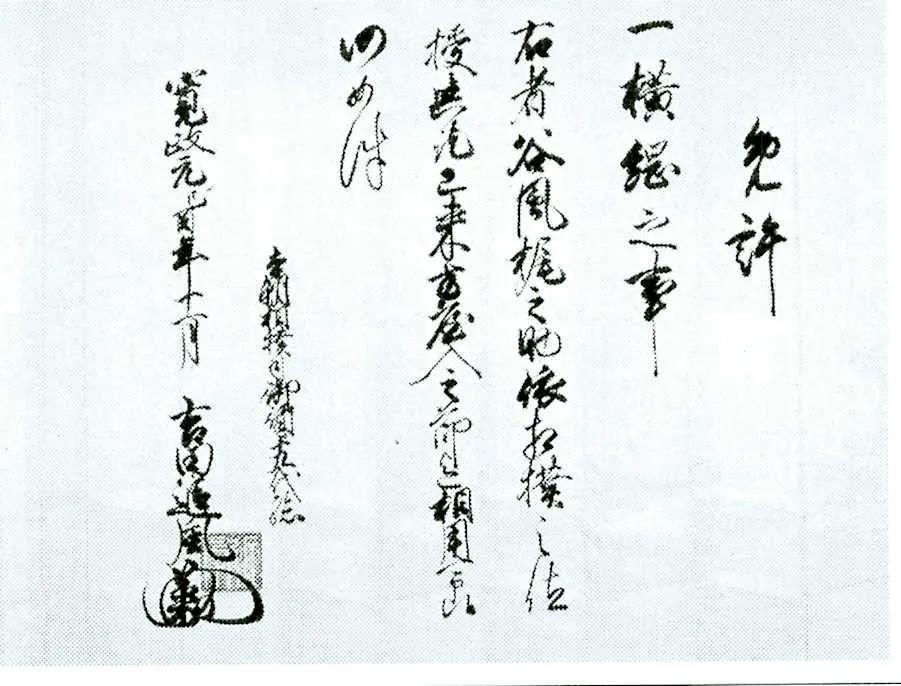 免許
一横綱之事
右者谷風梶之助依相撲之位
授與畢已来方屋入之節迄相用可申候
仍如件
本朝相撲之司御行司十九代
寛政元己酉年十一月 吉田追風